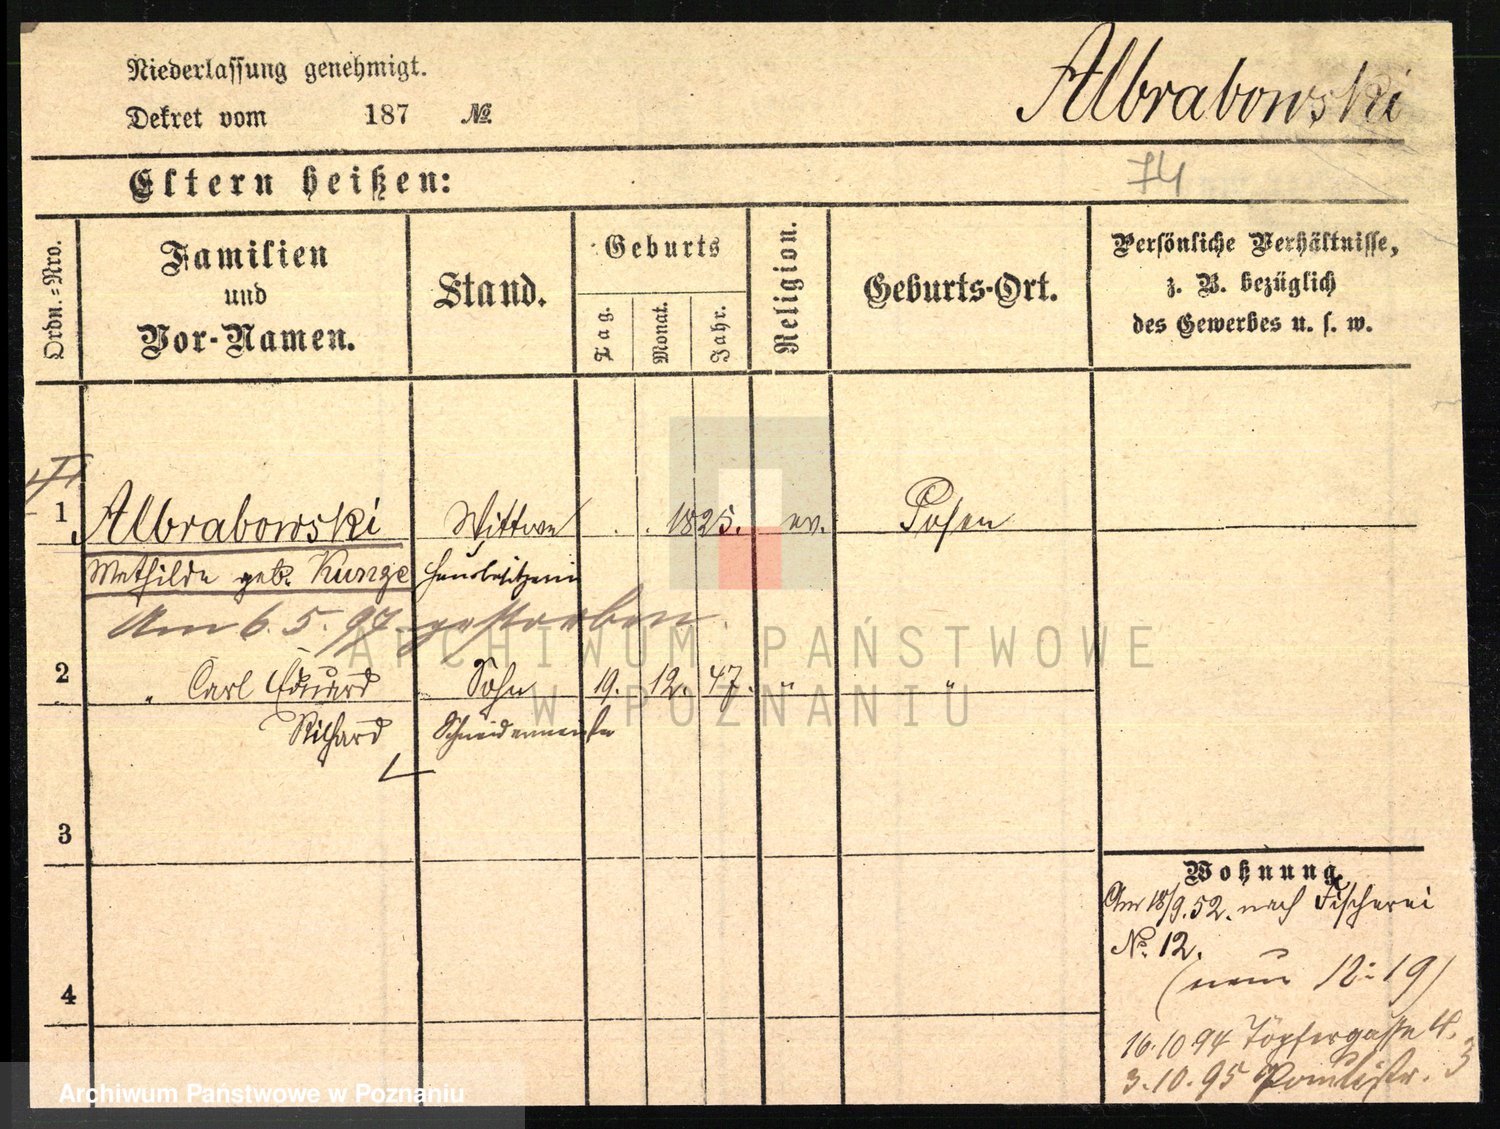 Niederlassung genehmigt.
Dekret vom 187 №
Albrabowski
74
Eltern heißen:
Ordn.=Nro.
Familien
und
Vor-Namen.
Stand.
Geburts
Tag.
Monat.
Jahr.
Religion.
Geburts-Ort.
Persönliche Verhältnisse,
z. B. bezüglich
des Gewerbes u. s. w.
1 Albrabowski Wittwe . . 1825. ev. Posen
Mathilde geb. Kunze Hausbesitzerin
Am 6.5.97 gestorben.
2 " Carl Eduard Sohn 19. 12. 47. " "
Richard Schneidermeister
3
4
Wohnung
Am 18/9.52. nach Fischerei
No. 12.
(neue 12:19)
16.10 94 Töpfergasse 4.
3.10.95 Paulistr. 3
ARCHIWUM PAŃSTWOWE
W POZNANIU
Archiwum Państwowe w Poznaniu